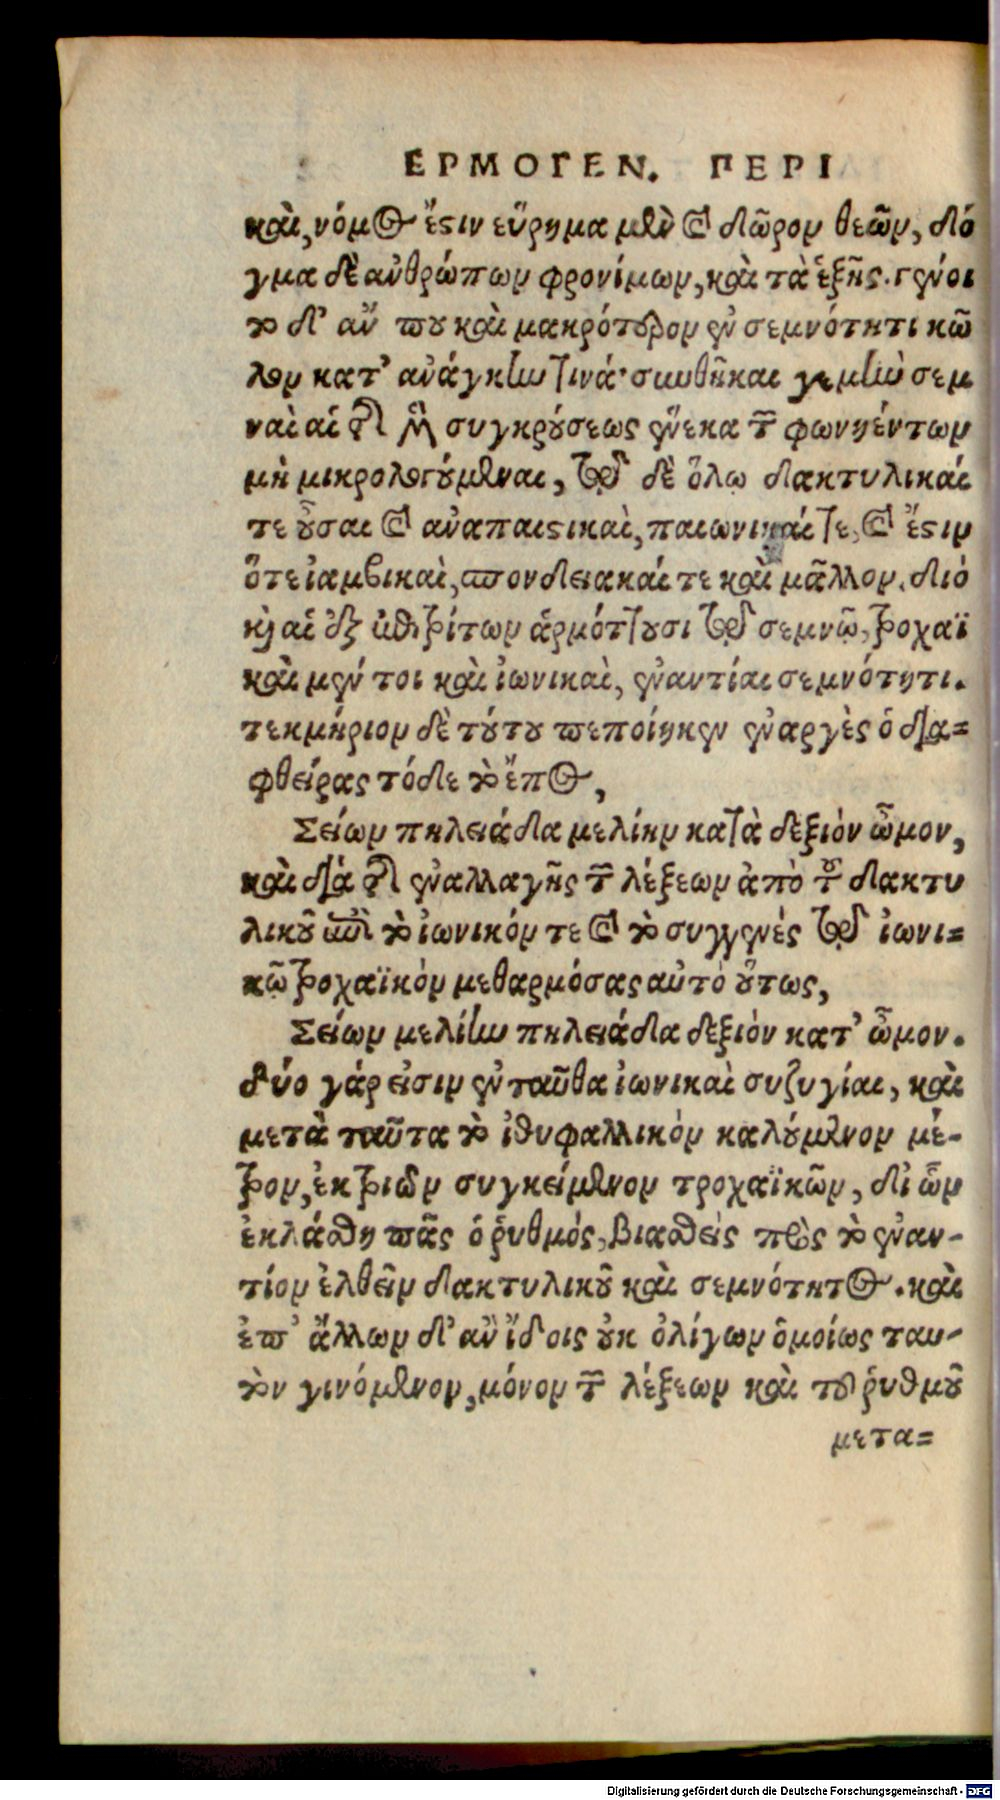 ΕΡΜΟΓΕΝ. ΠΕΡΙ
καὶ, νόμος ἔστιν εὕρημα μὲν καὶ δῶρον θεῶν, δό
γμα δὲ ἀνθρώπων φρονίμων, καὶ τὰ ἑξῆς. γένοι
το δ' ἄν που καὶ μακρότερον ἐν σεμνότητι κῶ
λον κατ' ἀνάγκην τινά· συνθῆκαι γε μὴν σεμ
ναὶ αἱ τῆς μὲν συγκρούσεως ἕνεκα τῶν φωνηέντων
μὴ μικρολογούμεναι, τῷ δὲ ὅλῳ δακτυλικαί
τε οὖσαι καὶ ἀναπαιστικαὶ, παιωνικαί τε, καὶ ἔστιν
ὅτε ἰαμβικαὶ, σπονδειακαί τε καὶ μᾶλλον. διό
καὶ αἱ ἐξ ἐπιτρίτων ἁρμόττουσι τῷ σεμνῷ, τροχαϊ
καὶ μέν τοι καὶ ἰωνικαὶ, ἐναντίαι σεμνότητι.
τεκμήριον δὲ τούτου πεποίηκεν ἐναργὲς ὁ δια=
φθείρας τόδε τὸ ἔπος,
Σείων πηλειάδα μελίην κατὰ δεξιὸν ὦμον,
καὶ διὰ τῆς ἐναλλαγῆς τῶν λέξεων ἀπὸ τοῦ δακτυ
λικοῦ ἐπὶ τὸ ἰωνικόν τε καὶ τὸ συγγενές τῷ ἰωνι=
κῷ τροχαϊκὸν μεθαρμόσας αὐτὸ οὕτως,
Σείων μελίην πηλειάδα δεξιὸν κατ' ὦμον.
δύο γάρ εἰσιν ἐνταῦθα ἰωνικαὶ συζυγίαι, καὶ
μετὰ ταῦτα τὸ ἰθυφαλλικὸν καλούμενον μέ-
τρον, ἐκ τριῶν συγκείμενον τροχαϊκῶν, δι ὧν
ἐκλάσθη πᾶς ὁ ῥυθμός, βιασθεὶς πρὸς τὸ ἐναν-
τίον ἐλθεῖν δακτυλικοῦ καὶ σεμνότητος. καὶ
ἐπ' ἄλλων δ' ἂν ἴδοις οὐκ ὀλίγων ὁμοίως ταυ-
τὸν γινόμενον, μόνον τῶν λέξεων καὶ τοῦ ῥυθμοῦ
μετα=
Digitalisierung gefördert durch die Deutsche Forschungsgemeinschaft - DFG